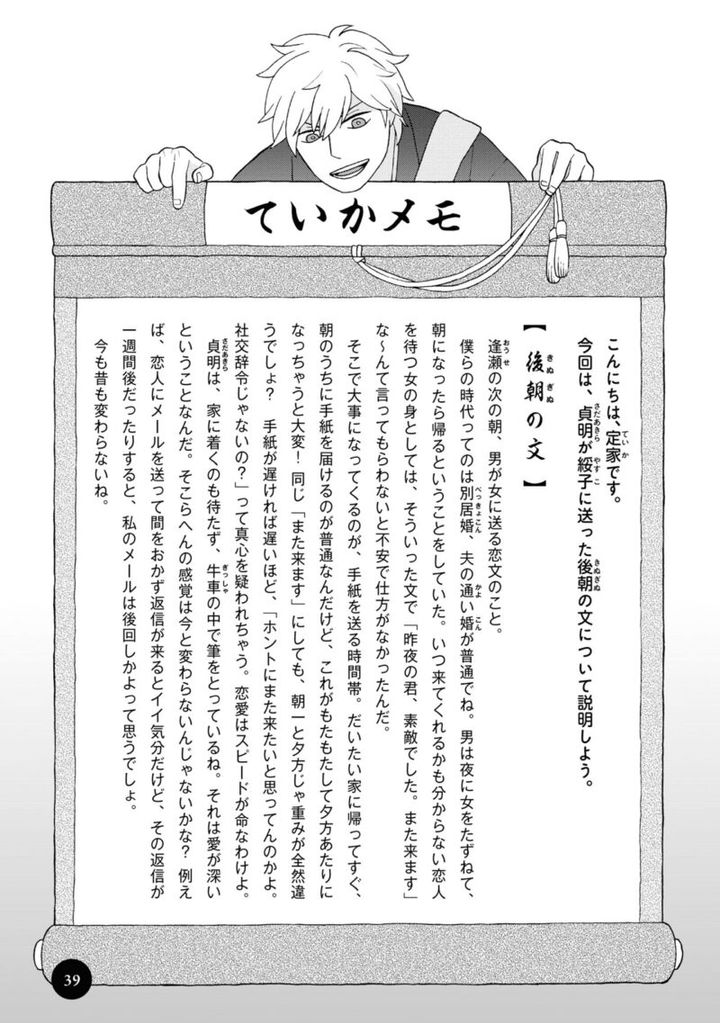 ていかメモ
こんにちは、定家です。
今回は、貞明が綏子に送った後朝の文について説明しよう。
【後朝の文】
逢瀬の次の朝、男が女に送る恋文のこと。
僕らの時代ってのは別居婚、夫の通い婚が普通でね。男は夜に女をたずねて、
朝になったら帰るということをしていた。いつ来てくれるかも分からない恋人
を待つ女の身としては、そういった文で「昨夜の君、素敵でした。また来ます」
な〜んて言ってもらわないと不安で仕方がなかったんだ。
そこで大事になってくるのが、手紙を送る時間帯。だいたい家に帰ってすぐ、
朝のうちに手紙を届けるのが普通なんだけど、これがもたもたして夕方あたりに
なっちゃうと大変！同じ「また来ます」にしても、朝一と夕方じゃ重みが全然違
うでしょ？　手紙が遅ければ遅いほど、「ホントにまた来たいと思ってんのかよ。
社交辞令じゃないの？」って真心を疑われちゃう。恋愛はスピードが命なわけよ。
貞明は、家に着くのも待たず、牛車の中で筆をとっているね。それは愛が深い
ということなんだ。そこらへんの感覚は今と変わらないんじゃないかな？　例え
ば、恋人にメールを送って間をおかず返信が来るとイイ気分だけど、その返信が
一週間後だったりすると、私のメールは後回しかよって思うでしょ。
今も昔も変わらないね。
39